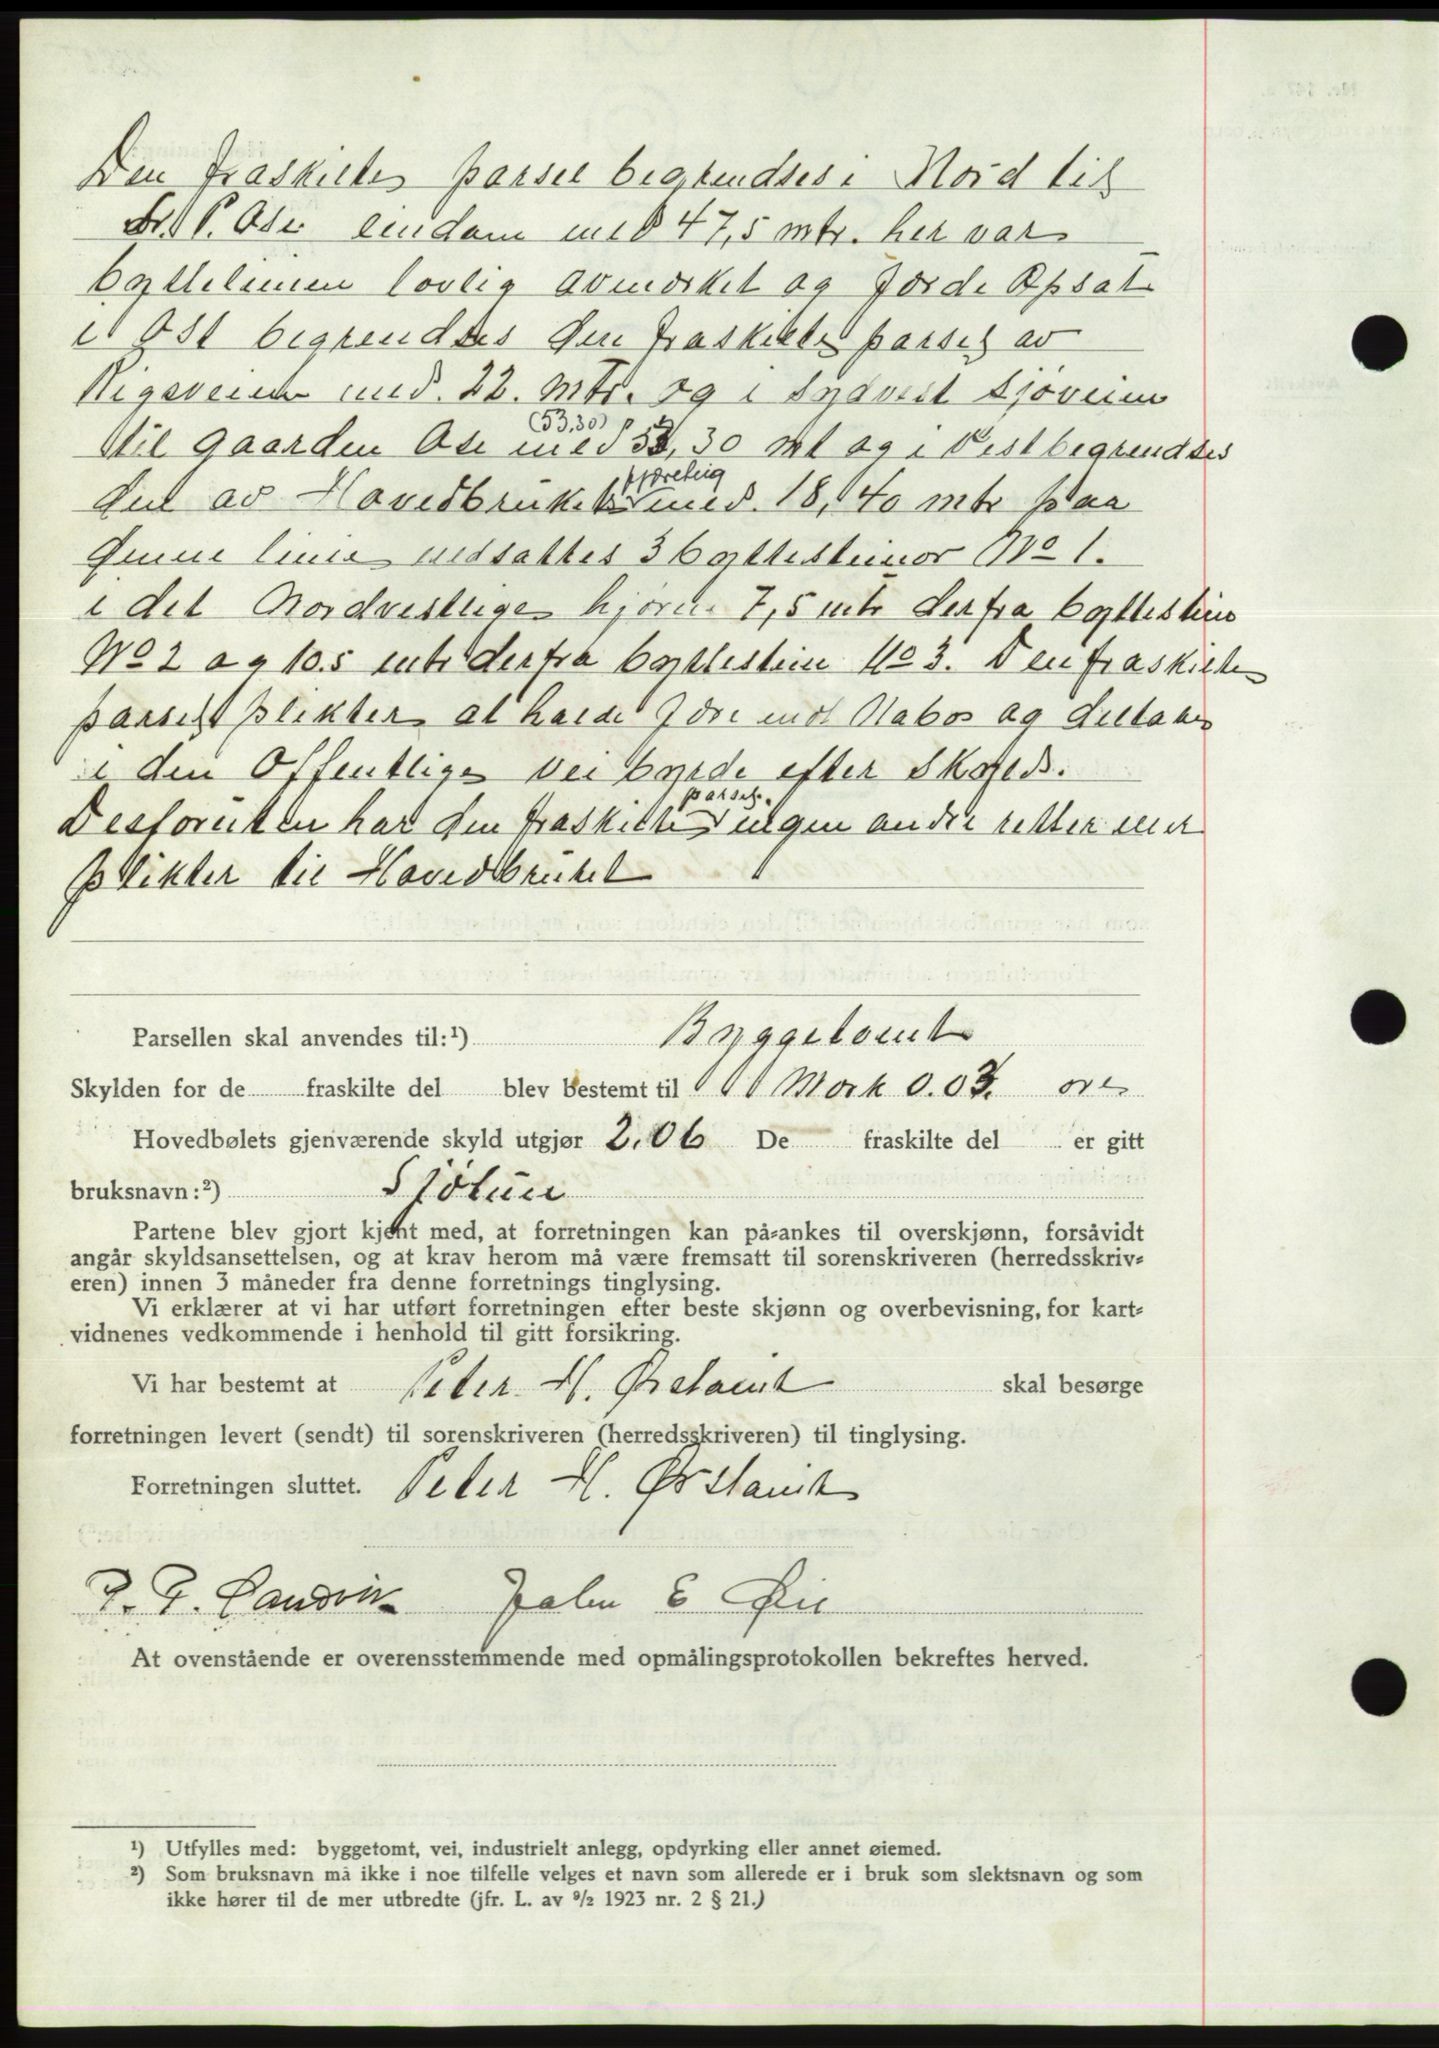 Den fraskilte parsel begrendses i Nord til
P. Ose eiendom med 47,5 mtr. her var
byttelinien lovlig avmerket og Jærde Opsat
i Øst begrendses den fraskilte parsel av
Rigsveien med. 22. mtr. og i Sydvest Sjøveien
(53,30)
til gaarden Ose med 53,30 mt og i Vest begrendses
den av Hovedbruket med. 18,40 mtr paa
denne linie nedsattes 3 byttesteiner No 1.
i det Nordvestlige hjørne 7,5 mtr derfra byttestein
No 2 og 10.5 mtr derfra byttestein No 3. Den fraskilte
parsel plikter at holde Jære mot Nabos og deltake
i den Offentlige vei byrde efter Skyld.
parsel.
Desforuten har den fraskilte ingen andre retter eller
plikter til Hovedbruket
Parsellen skal anvendes til:¹) Byggetomt
Skylden for de fraskilte del blev bestemt til Mark 0.03. øre
Hovedbølets gjenværende skyld utgjør 2.06 De fraskilte del er gitt
bruksnavn:²) Sjøtun
Partene blev gjort kjent med, at forretningen kan på-ankes til overskjønn, forsåvidt
angår skyldsansettelsen, og at krav herom må være fremsatt til sorenskriveren (herredsskriv-
eren) innen 3 måneder fra denne forretnings tinglysing.
Vi erklærer at vi har utført forretningen efter beste skjønn og overbevisning, for kart-
vidnenes vedkommende i henhold til gitt forsikring.
Vi har bestemt at Peter H. Ørstavik skal besørge
forretningen levert (sendt) til sorenskriveren (herredsskriveren) til tinglysing.
Forretningen sluttet. Peter H. Ørstavik
P. P. Sandvik John E Øie
At ovenstående er overensstemmende med opmålingsprotokollen bekreftes herved.
¹) Utfylles med: byggetomt, vei, industrielt anlegg, opdyrking eller annet øiemed.
²) Som bruksnavn må ikke i noe tilfelle velges et navn som allerede er i bruk som slektsnavn og som
ikke hører til de mer utbredte (jfr. L. av ⁹/₂ 1923 nr. 2 § 21.)